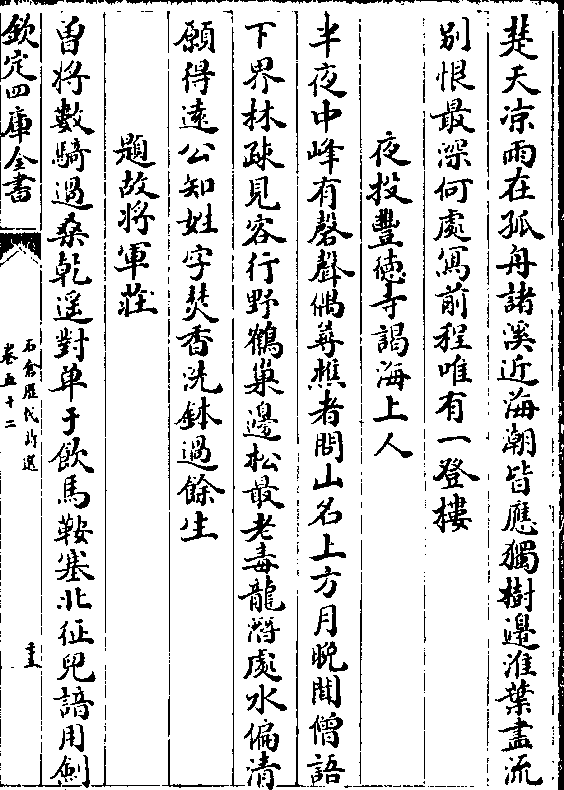 楚天凉雨在孤舟諸溪近海潮皆應獨樹邊淮葉盡流
別恨最深何處寫前程唯有一登樓
夜投豐德寺謁海上人
半夜中峰有磬聲偶尋樵者問山名上方月晩聞僧語
下界林疎見客行野鶴巢邊松最老毒龍潛處水偏清
願得遠公知姓字焚香洗鉢過餘生
題故將軍莊
曽將數騎過桑乾遥對單于飲馬鞍塞北征兒諳用劍
欽定四庫全書
石倉歴代詩選
卷五十二